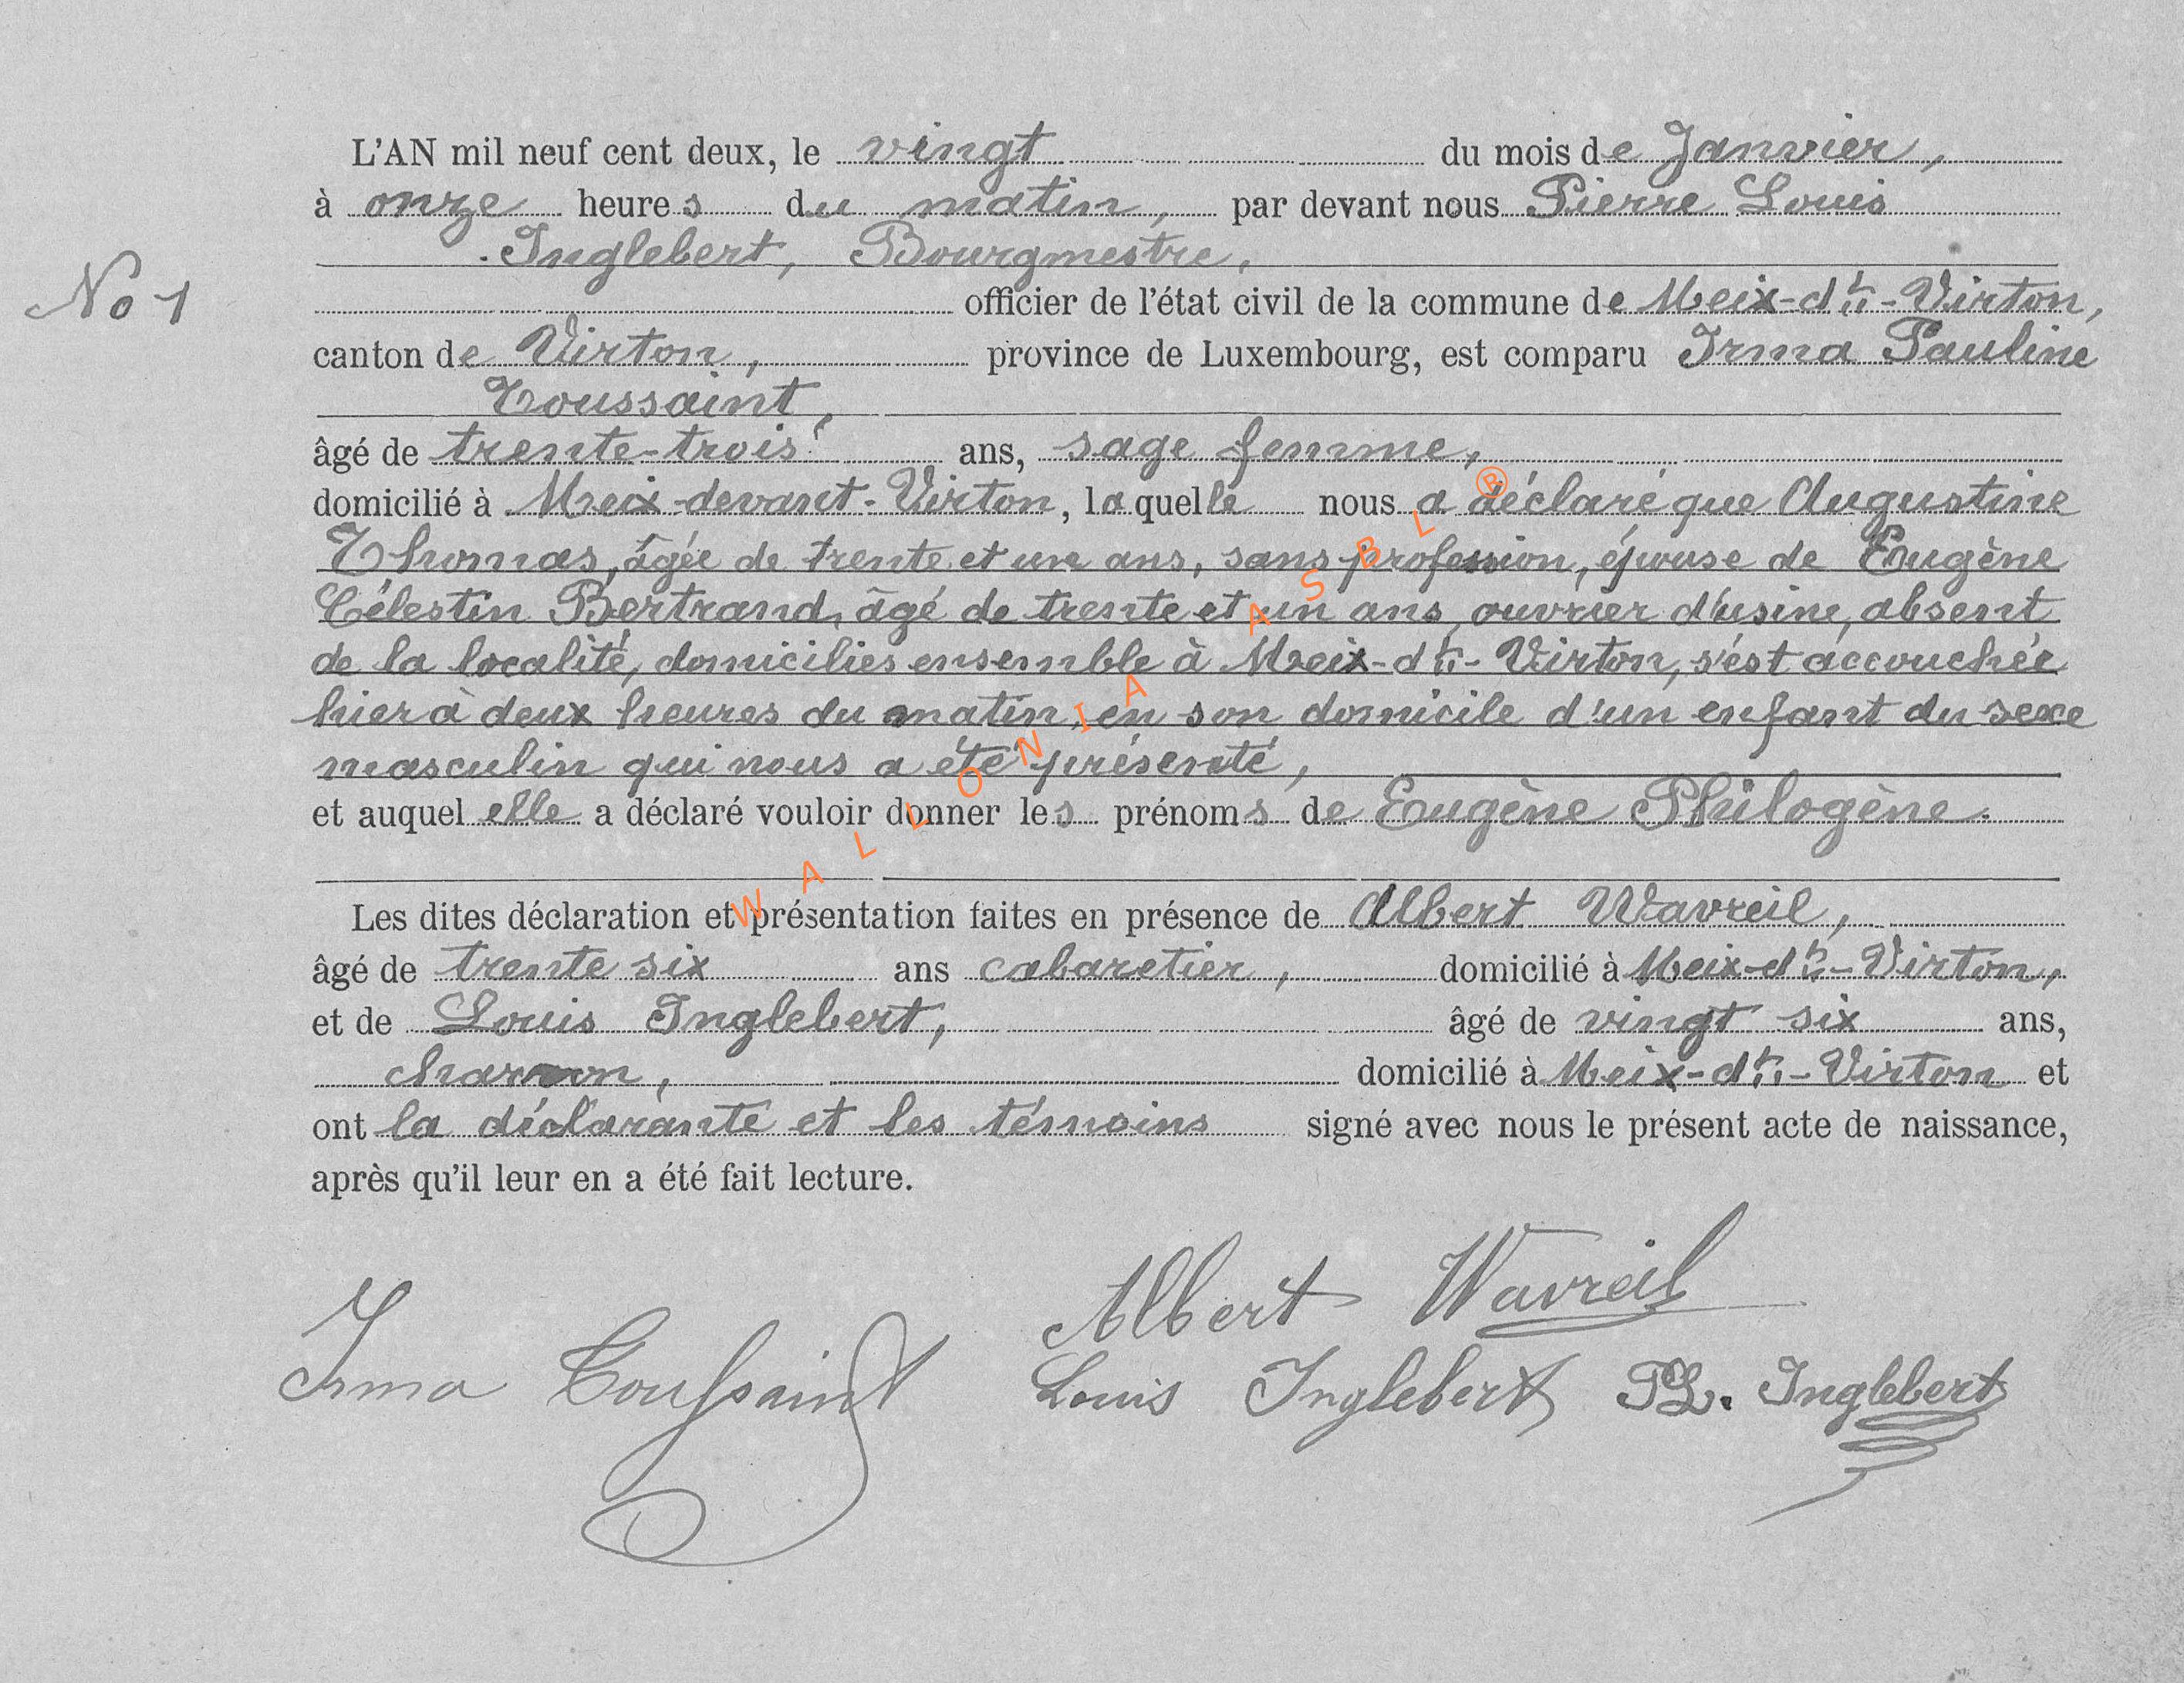 L'AN mil neuf cent deux, le vingt du mois de Janvier,
à onze heures du matin, par devant nous Pierre Louis
Inglebert, Bourgmestre,
No 1
officier de l'état civil de la commune de Meix-dt-Virton,
canton de Virton, province de Luxembourg, est comparu Irma Pauline
Toussaint,
âgé de trente-trois ans, sage femme,
domicilié à Meix-devant-Virton, laquelle nous a déclaré que Augustine
Thomas, âgée de trente et un ans, sans profession, épouse de Eugène
Célestin Bertrand, âgé de trente et un ans, ouvrier d'usine, absent
de la localité, domiciliés ensemble à Meix-dt-Virton, s'est accouchée
hier à deux heures du matin, en son domicile d'un enfant du sexe
masculin qui nous a été présenté,
et auquel elle a déclaré vouloir donner les prénoms de Eugène Philogène.
Les dites déclaration et présentation faites en présence de Albert Wavreil,
âgé de trente six ans cabaretier, domicilié à Meix-dt-Virton,
et de Louis Inglebert, âgé de vingt six ans,
charron, domicilié à Meix-dt-Virton et
ont la déclarante et les témoins signé avec nous le présent acte de naissance,
après qu'il leur en a été fait lecture.
Albert Wavreil
Irma Toussaint Louis Inglebert PL. Inglebert
WALLONIA ASBL ®